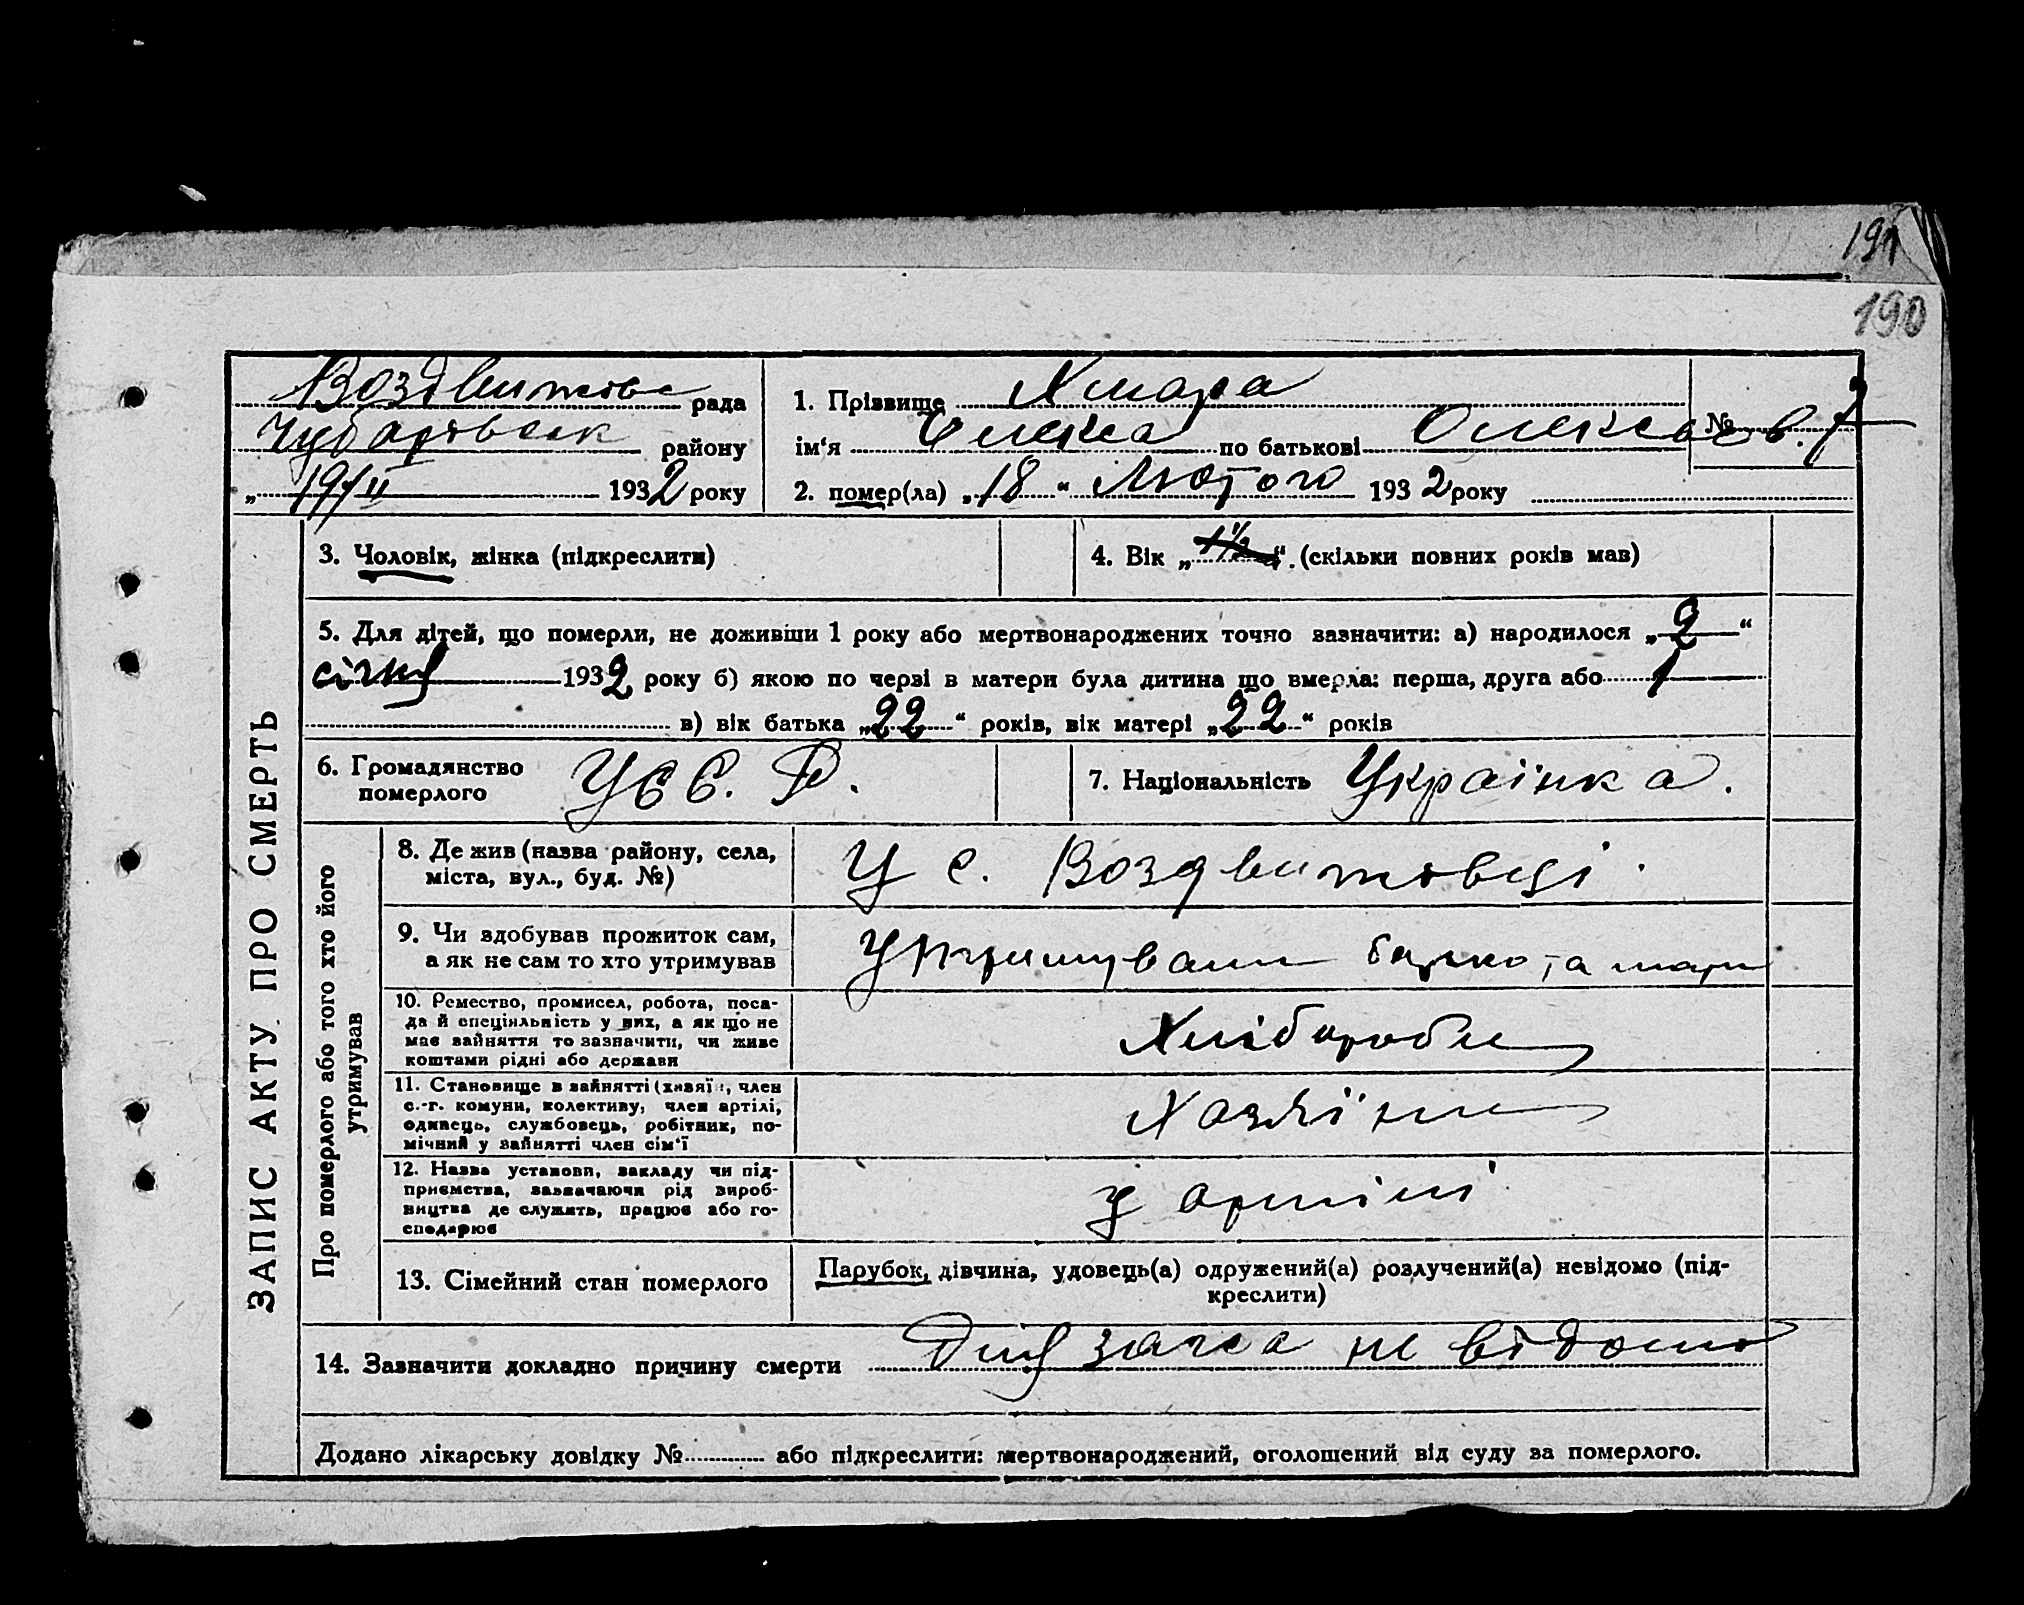 191
190
Воздвижівс рада
Чубарівськ району
„ 19/II 1932 року
1. Прізвище Хмара
ім‘я Олекса по батькові Олексієв.
№ 7
2. помер(ла) „18“ Лютого 1932 року
3. Чоловік, жінка (підкреслити)
4. Вік „1½“. (скільки повних років мав)
5. Для дітей, що померли, не доживши 1 року або мертвонароджених точно зазначити: а) народилося „2“
січня 1932 року б) якою по черзі в матери була дитина що вмерла: перша, друга або 1
в) вік батька „22“ років, вік матері „22“ років
6. Громадянство
померлого
УСС. Р.
7. Національність Українка.
ЗАПИС АКТУ ПРО СМЕРТЬ
Про померлого або того хто його
утримував
8. Де жив (назва району, села,
міста, вул., буд. №)
У с. Воздвижівці.
9. Чи здобував прожиток сам,
а як не сам то хто утримував
Утримували батько та мати
10. Ремество, промисел, робота, поса-
да й спеціяльність у них, а як що не
має зайняття то зазначити, чи живе
коштами рідні або держави
Хлібороби
11. Становище в зайнятті (хазяїн, член
с.-г. комуни, колективу, член артілі,
одинець, службовець, робітник, по-
мічний у зайнятті член сім‘ї
Хозяїни
12. Назва установи, закладу чи під-
приємства, зазначаючи рід вироб-
ництва де служить, працює або го-
сподарює
у артілі
13. Сімейний стан померлого
Парубок, дівчина, удовець(а) одружений(а) розлучений(а) невідомо (під-
креслити)
14. Зазначити докладно причину смерти не відомо
Додано лікарську довідку № або підкреслити: мертвонароджений, оголошений від суду за померлого.